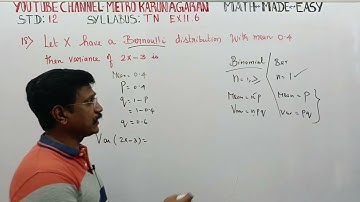 YOUTUBE CHANNEL: METRO KARUNAGARAN MATH-MADE-EASY
STD: 12 SYLLABUS: TN EX 11.6
18) Let X have a Bernoulli distribution with mean 0.4
then variance of 2X-3 is
Mean = 0.4
p = 0.4
q = 1-p
= 1-0.4
q = 0.6
Var (2X-3) =
Binomial / Ber
n = 1, ≥ n = 1 ✓
Mean = np Mean = p
Var = npq Var = pq